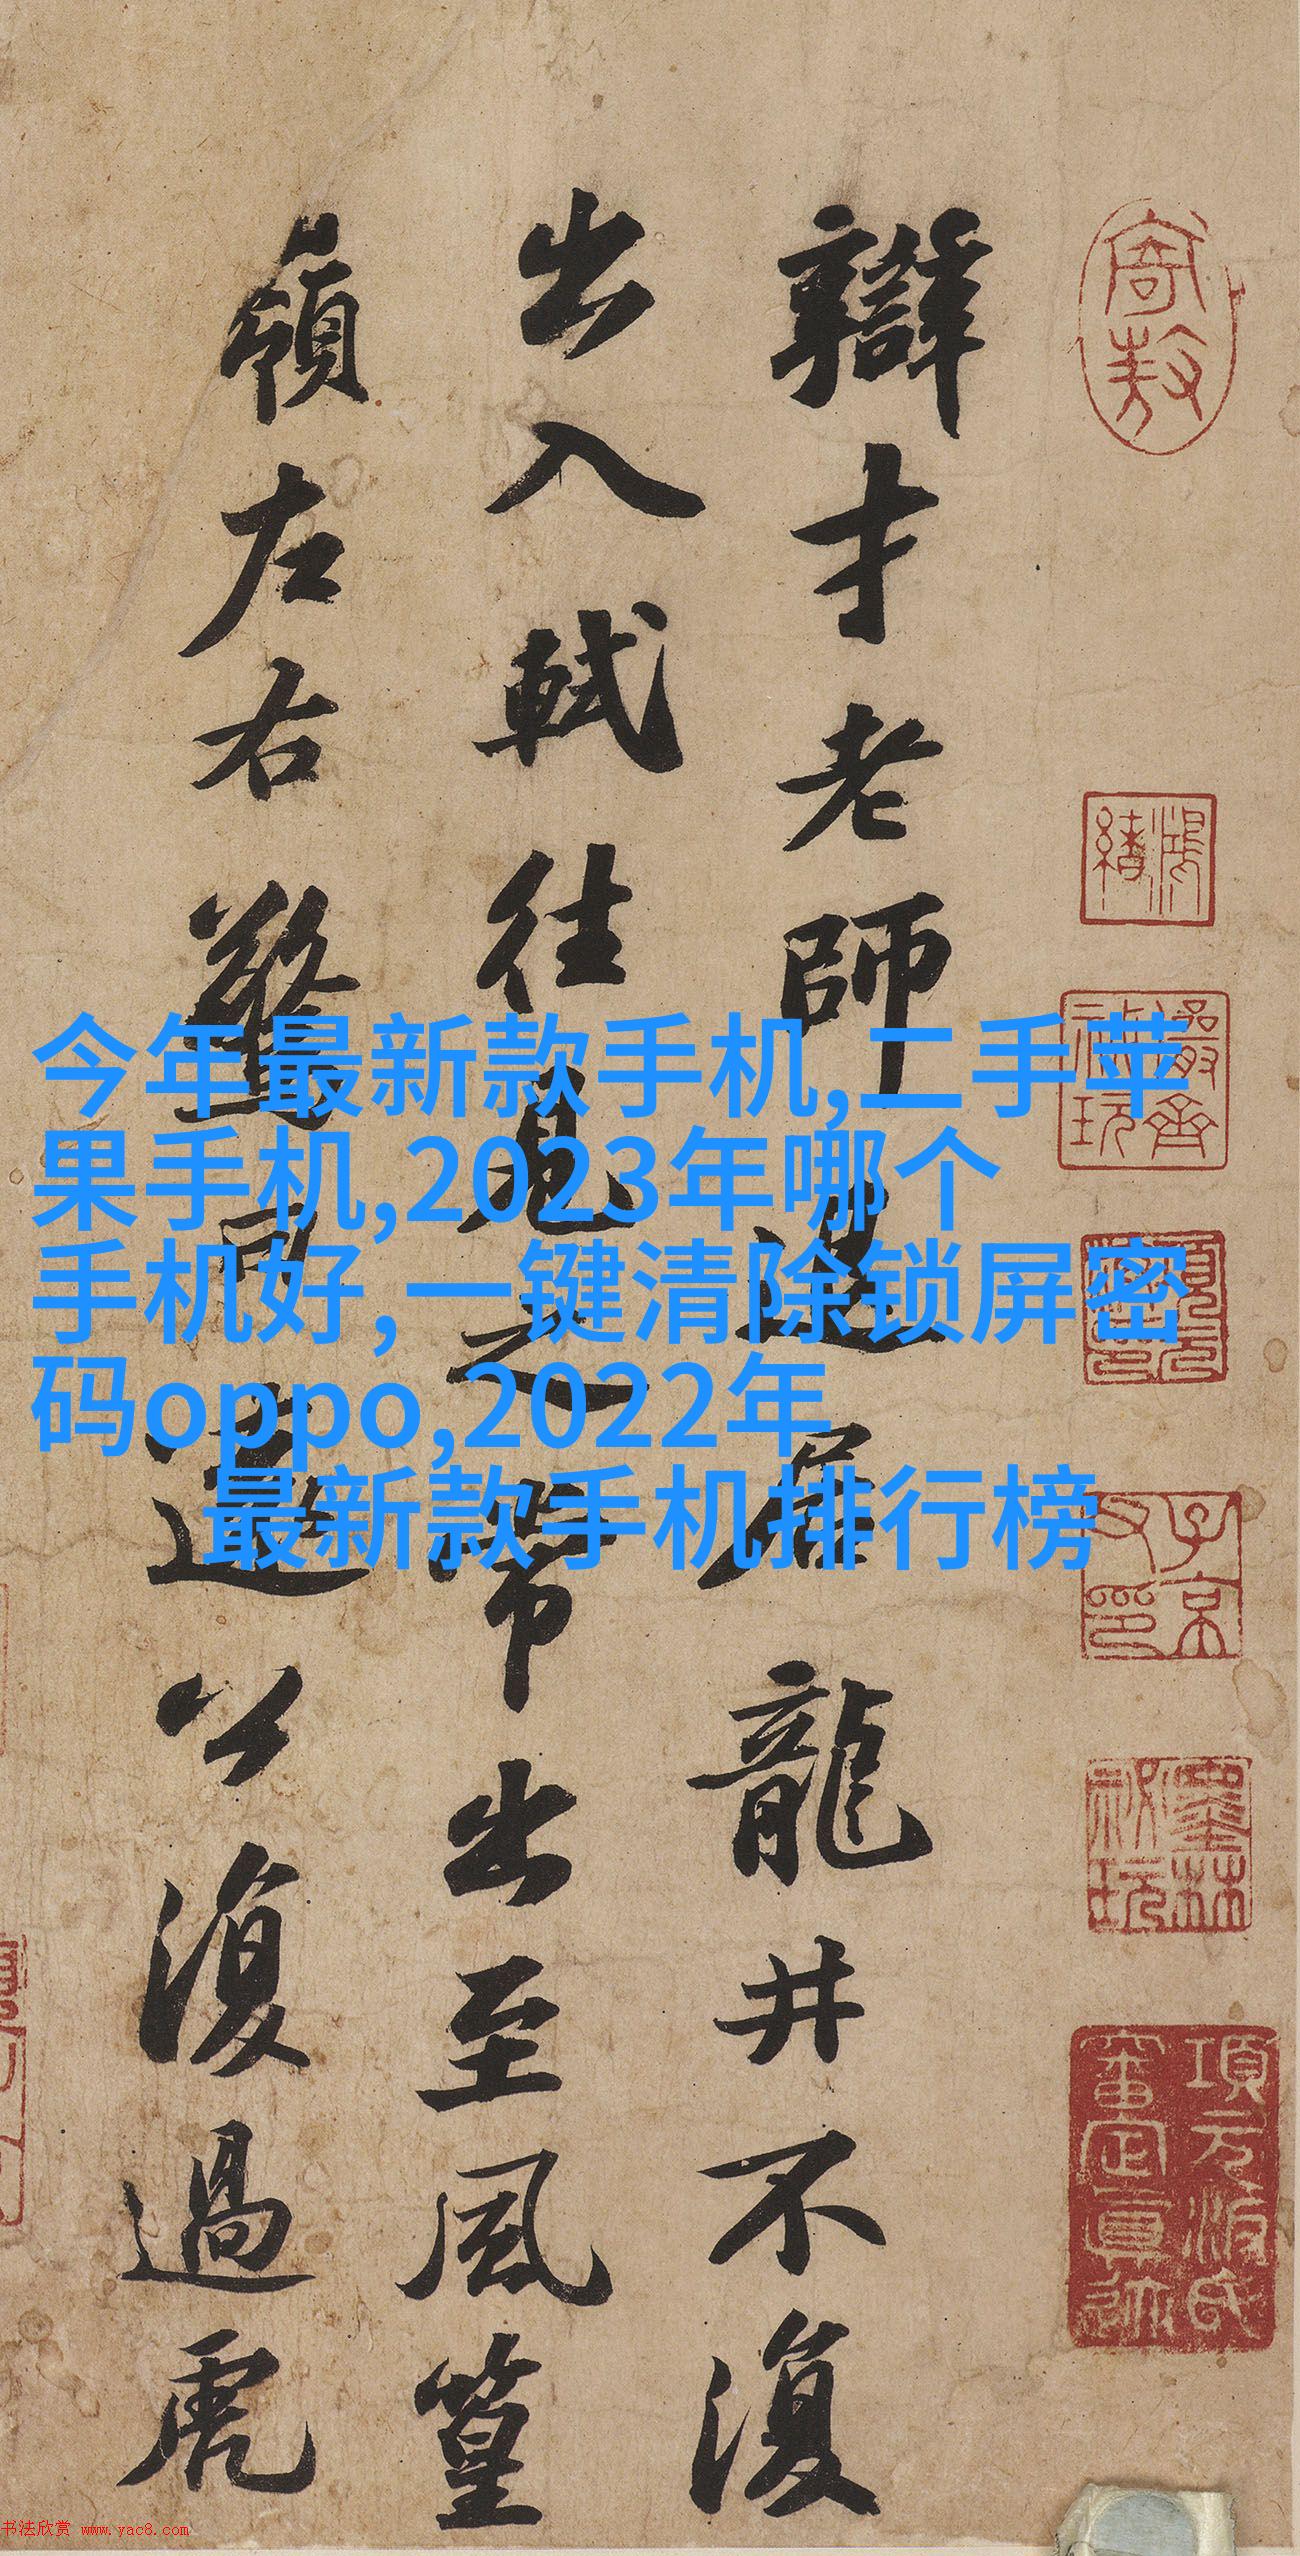 辯才老師退居龍井不復
出入軾往見之常出至風篁
嶺左右驚曰遠公復過虎
今年最新款手机,二手苹
果手机,2023年哪个
手机好,一键清除锁屏密
码oppo,2022年
最新款手机排行榜
項元汴氏審定真跡
子京父印
墨林祕玩
书法欣赏 www.yac8.com